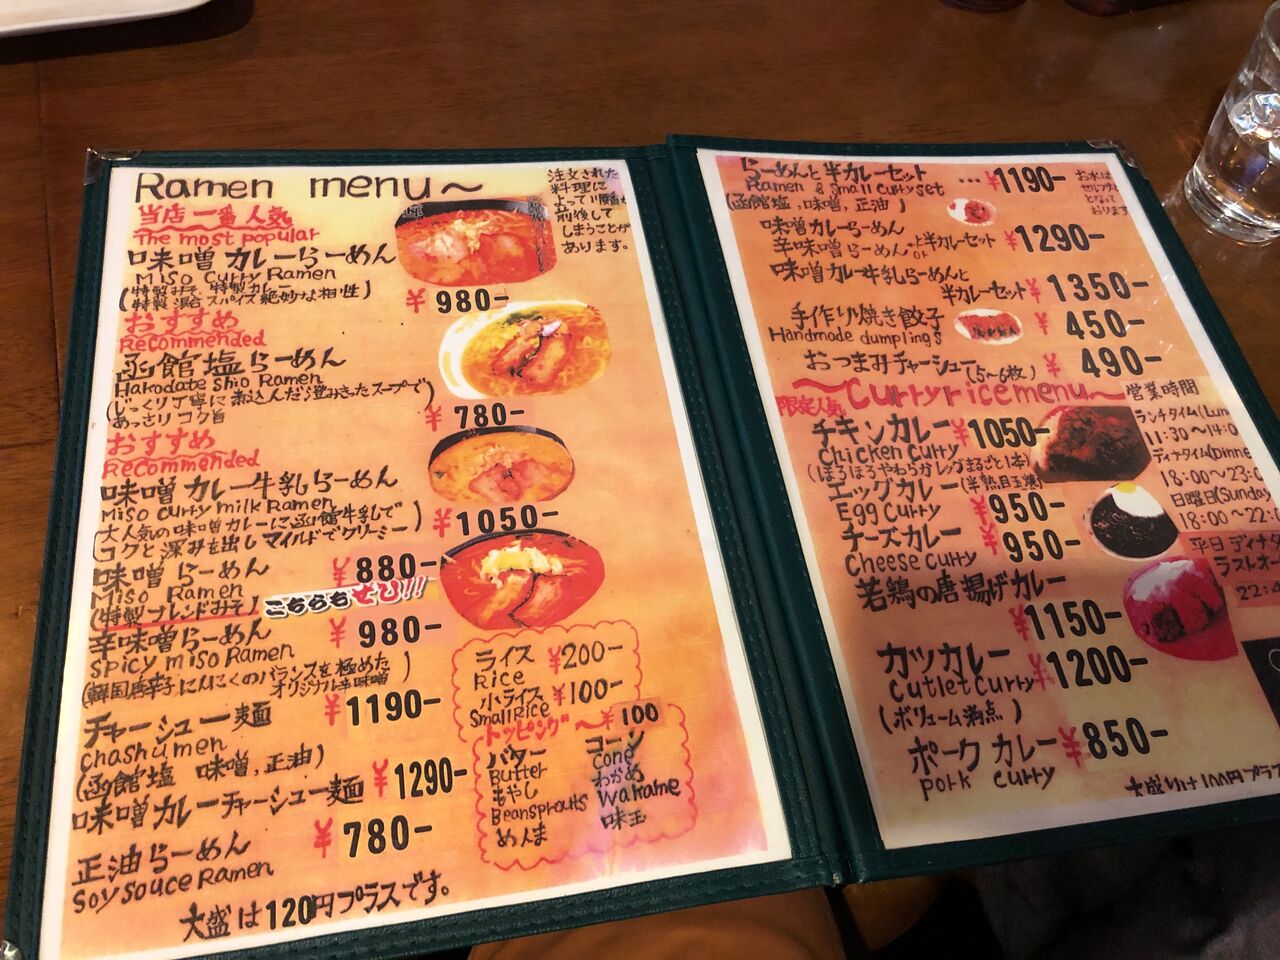 Ramen menu～
当店一番人気
The most popular
味噌カレーらーめん
Miso Curry Ramen
(特製みそ、特製カレー
特製混合スパイス絶妙な相性)
¥980-
注文された
料理に
よって順番が
前後して
しまうことが
あります。
おすすめ
Recommended
函館塩らーめん
Hakodate shio Ramen
(じっくり丁寧に煮込んだ澄みきったスープで)
あっさりコク旨
¥780-
おすすめ
Recommended
味噌カレー牛乳らーめん
Miso curry milk Ramen
大人気の味噌カレーに函館牛乳で
コクと深みを出しマイルドでクリーミー
¥1050-
味噌らーめん
Miso Ramen
(特製ブレンドみそ)
¥880-
こちらもぜひ!!
辛味噌らーめん
Spicy miso Ramen
(韓国唐辛子にんにくのバランスを極めた
オリジナル辛味噌)
¥980-
チャーシュー麺
chashu men
(函館塩 味噌,正油)
¥1190-
味噌カレーチャーシュー麺
¥1290-
正油らーめん
Soy souce Ramen
¥780-
大盛は120円プラスです。
ライス ¥200-
Rice
小ライス ¥100-
Small Rice
トッピング～¥100
バター
Butter
もやし
Beansprouts
めんま
コーン
cone
わかめ
Wakame
味玉
らーめんと半カレーセット …¥1190-
Ramen & Small curry set
(函館塩,味噌,正油)
お水は
セルフと
なって
おります
味噌カレーらーめん
辛味噌らーめん or と半カレーセット ¥1290-
味噌カレー牛乳らーめんと
半カレーセット ¥1350-
手作り焼き餃子 ¥450-
Handmade dumplings
おつまみチャーシュー(5~6枚) ¥490-
限定人気
～Curry rice menu～
チキンカレー ¥1050-
Chicken Curry
(ほろほろやわらかレッグまるごと1本)
エッグカレー(半熟目玉焼)
Egg Curry
¥950-
チーズカレー ¥950-
Cheese Curry
若鶏の唐揚げカレー
¥1150-
カツカレー ¥1200-
Cutlet Curry
(ボリューム満点)
ポークカレー ¥850-
pork curry
大盛りは100円プラス
営業時間
ランチタイム(Lun
11:30～14:0
ディナタイム(Dinne
18:00～23:0
日曜日(Sunday
18:00～22:
平日ディナタ
ラストオー
22: